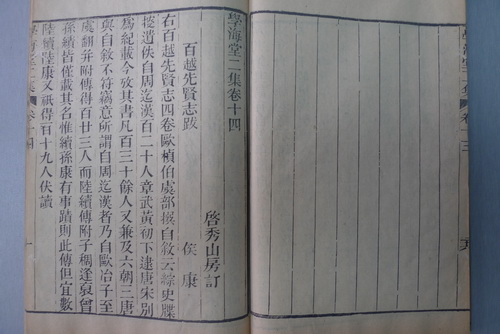 學海堂二集卷十四
啓秀山房訂
百越先賢志跋
侯康
右百越先賢志四卷歐楨伯虞部撰自敘云綜史牒
按遺佚自周迄漢百二十人章武黃初下逮唐宋別
為紀載今攷其書凡百三十餘人又兼及六朝三唐
與自敘不符竊意所謂自周迄漢者乃自歐冶子至
虞翻幷附傳得百廿三人而陸續傳附子稠逢裒曾
孫續皆僅載其名惟續孫康有事蹟則此傳但宜數
陸續陸康又祇得百十九人伏讀
學海堂二集
卷十四
一
卷十三